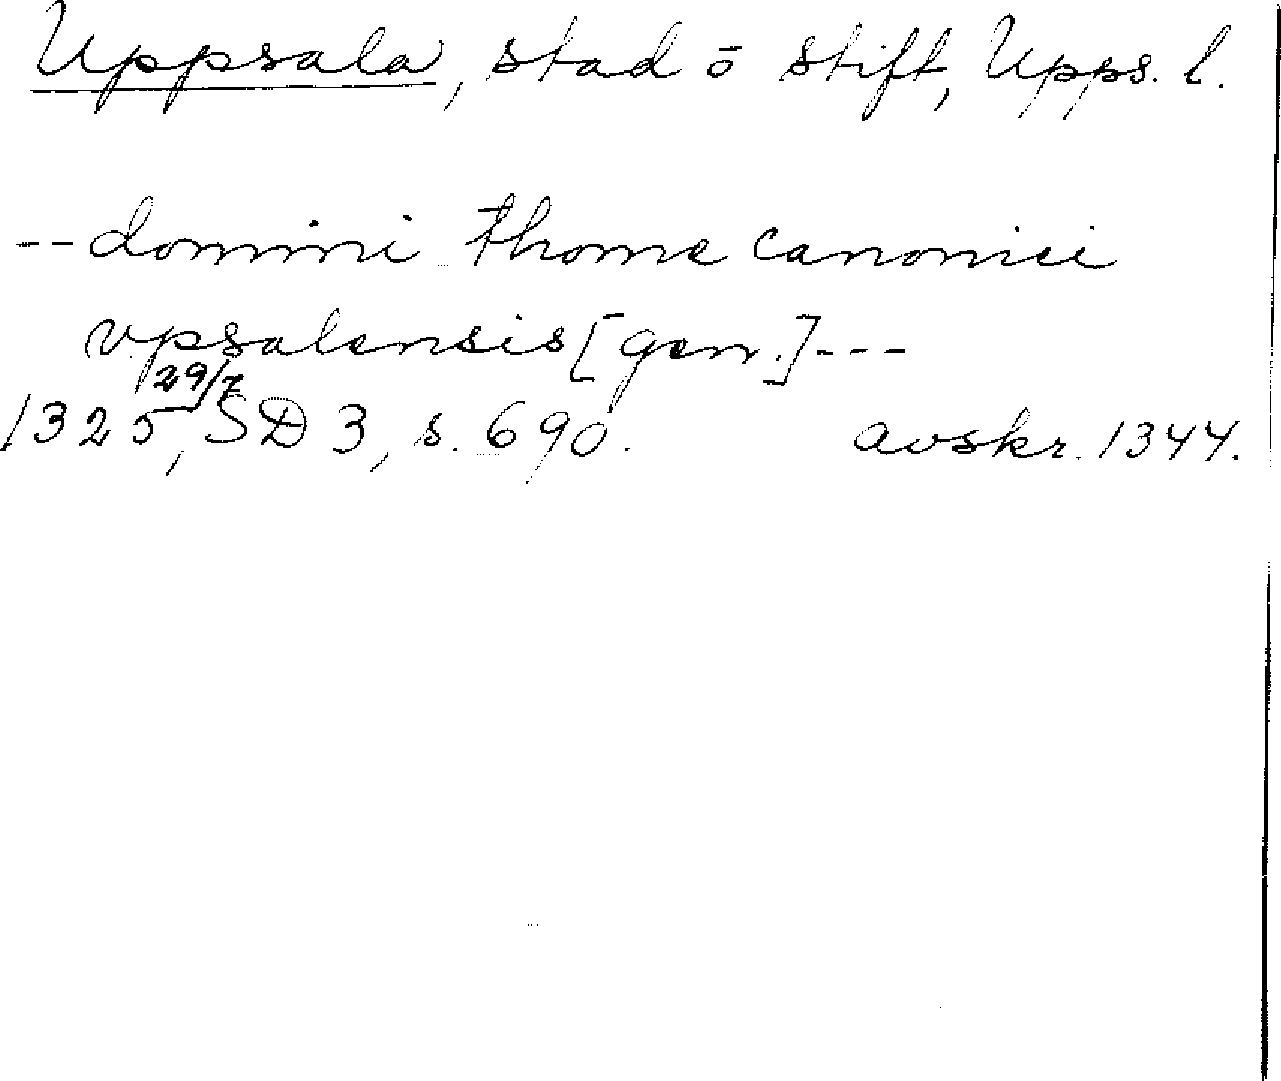 Uppsala, stad o stift, Upps. l.
-- domini thome canonici
vpsalensis [gen.] ---
29/7
1325, SD 3, s. 690. avskr. 1344.